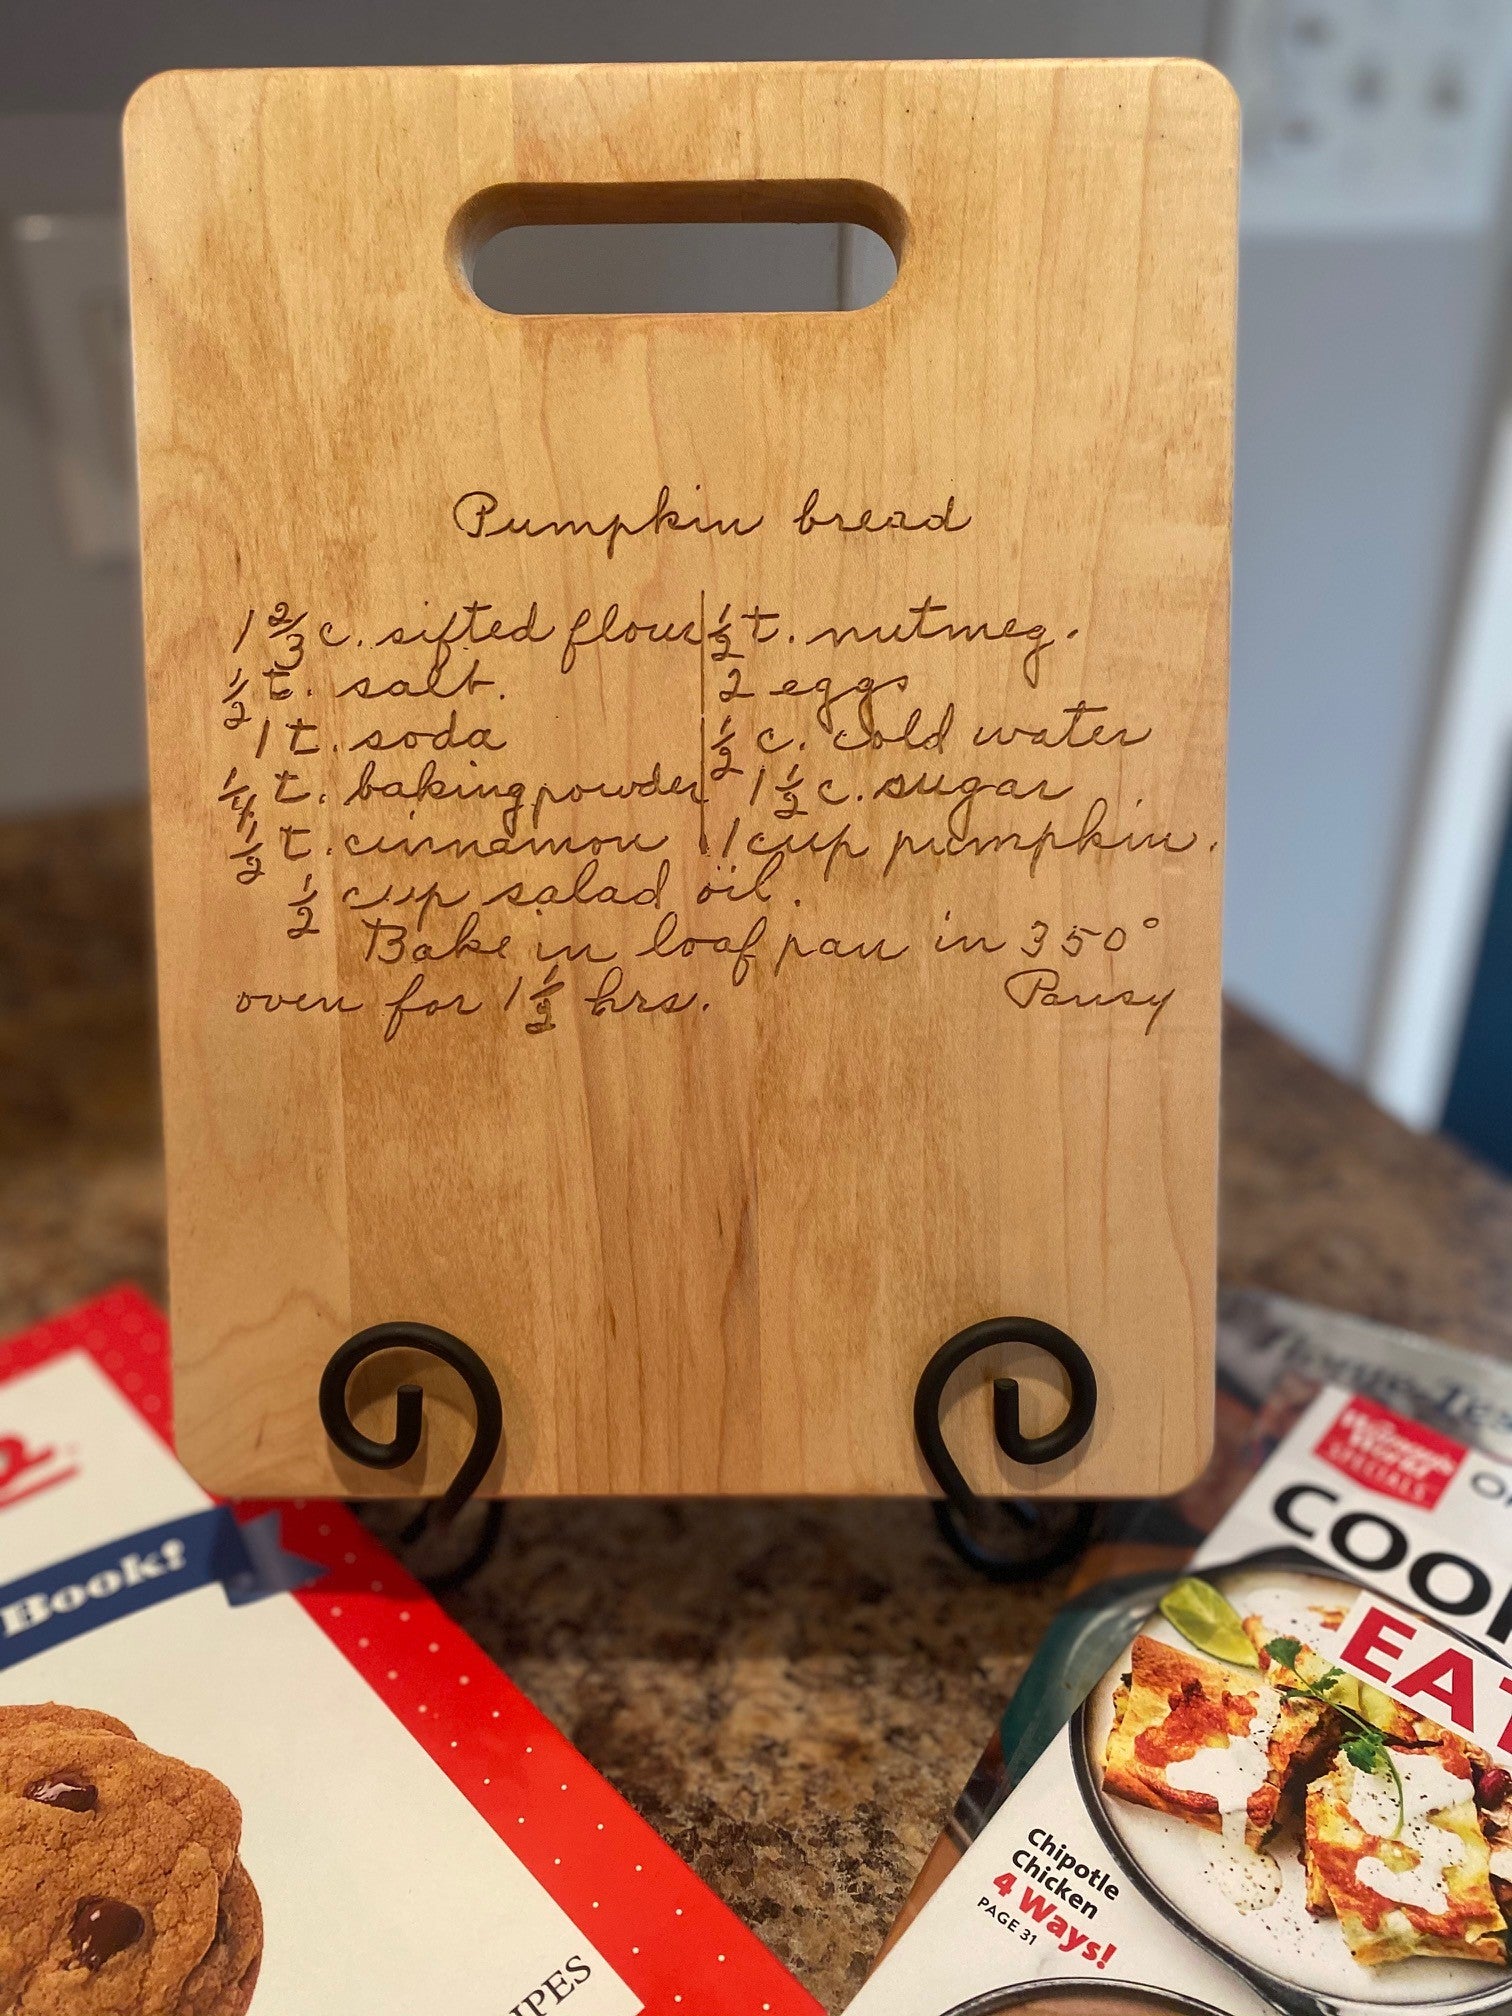 Pumpkin bread
1 2/3 c. sifted flour
1/2 t. salt.
1 t. soda
1/4 t. baking powder
1/2 t. cinnamon
1/2 t. nutmeg.
2 eggs
1/2 c. cold water
1 1/2 c. sugar
1 cup pumpkin.
1/2 cup salad oil.
Bake in loaf pan in 350°
oven for 1 1/2 hrs.
Pansy
Book!
IPES
Woman's World
SPECIALS
COO
EAT
Chipotle
Chicken
4 Ways!
PAGE 31